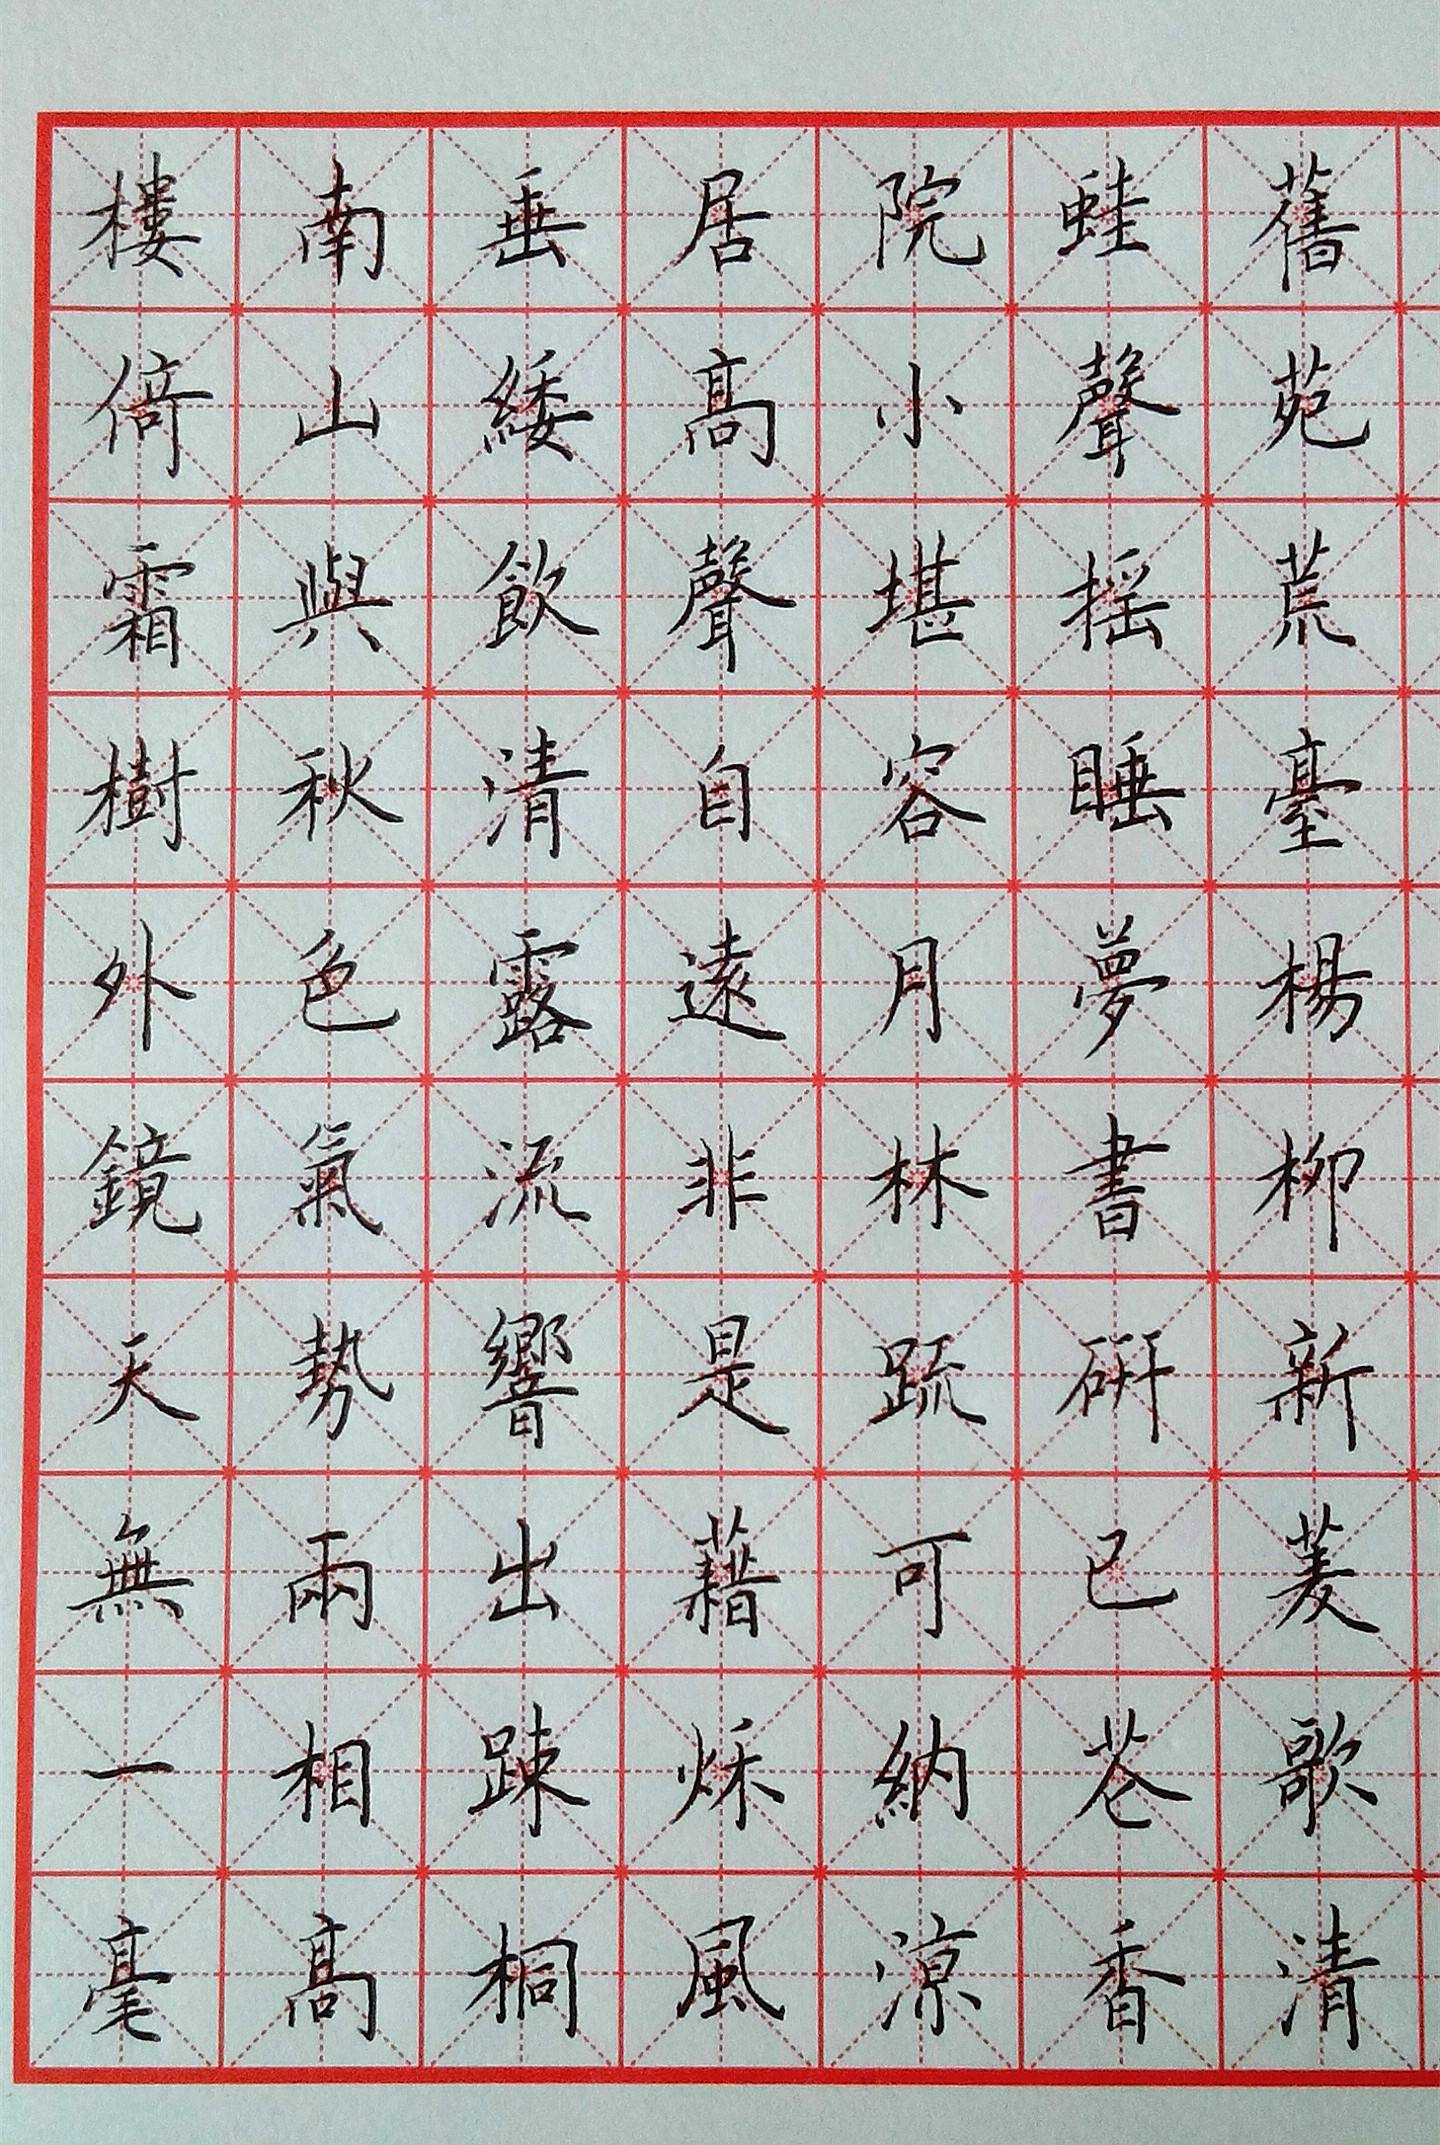 樓倚霜樹外鏡天無一毫
南山與秋色氣勢兩相髙
垂緌飲清露流響出踈桐
居髙聲自遠非是藉秌風
院小堪容月林䟽可納涼
蛙聲摇睡夢書硏已苍香
舊苑荒臺楊柳新菱歌清